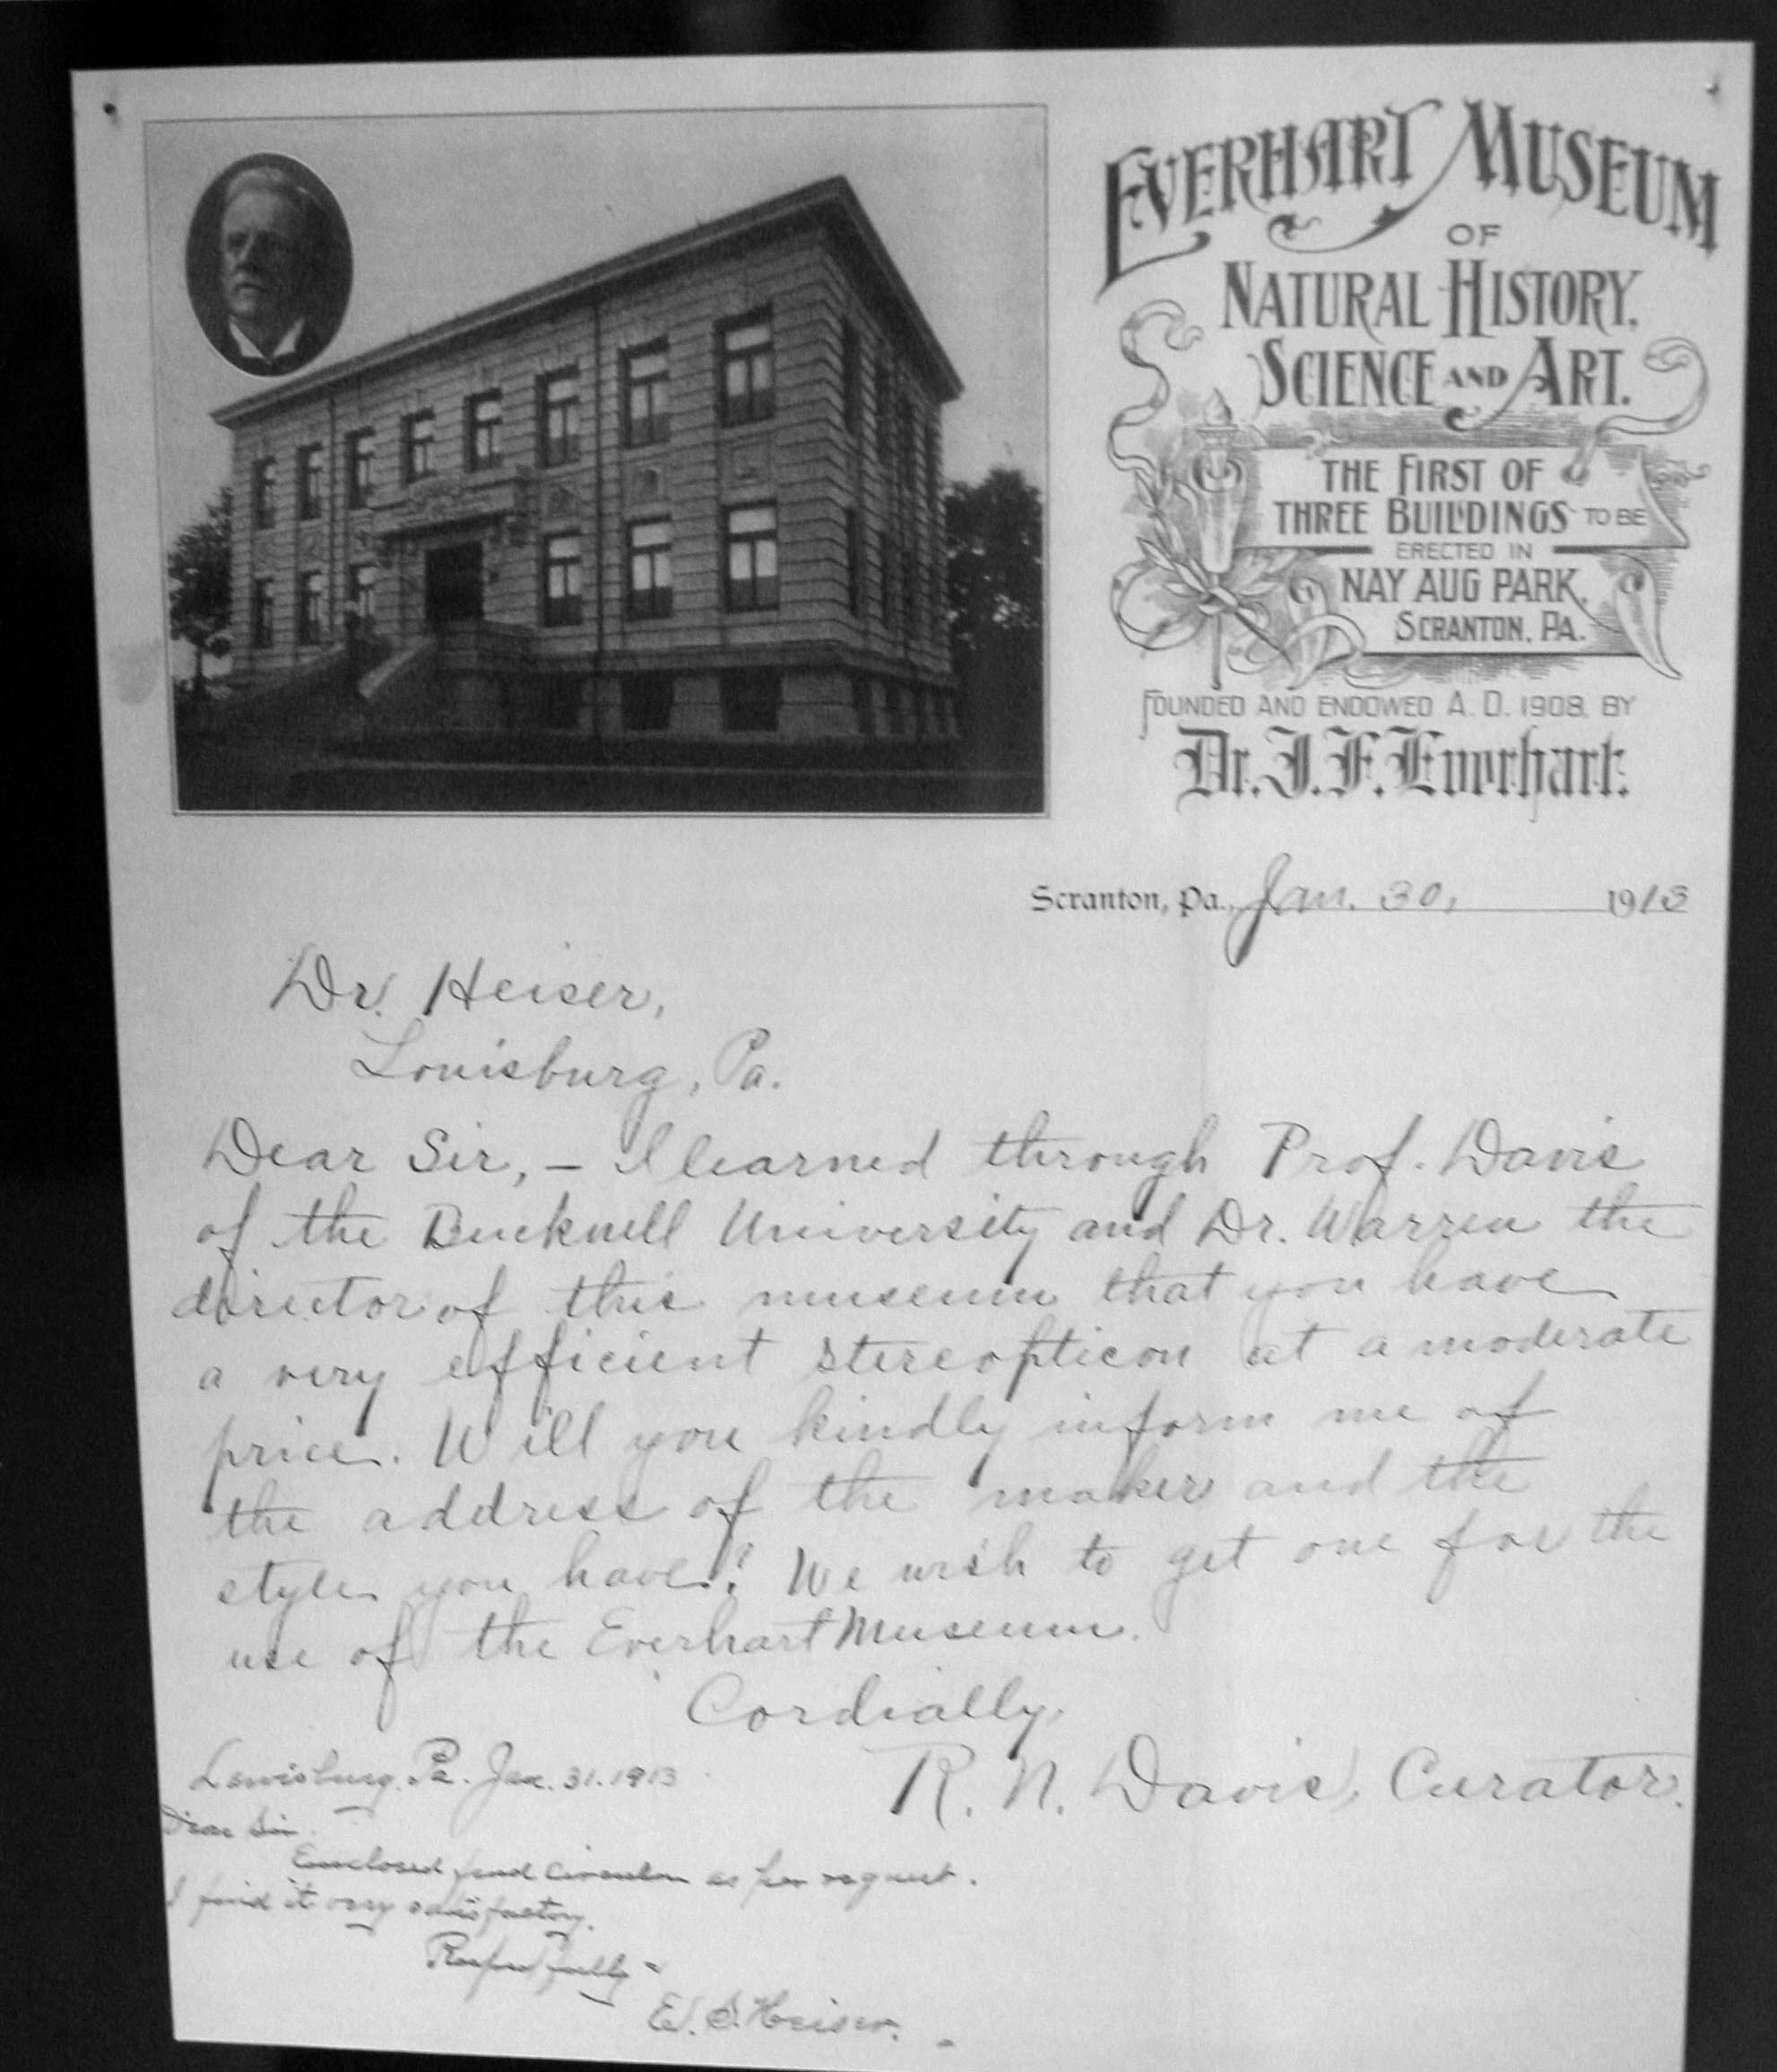 EVERHART MUSEUM
OF
NATURAL HISTORY,
SCIENCE AND ART.
THE FIRST OF
THREE BUILDINGS TO BE
ERECTED IN
NAY AUG PARK,
SCRANTON, PA.
FOUNDED AND ENDOWED A. D. 1908, BY
Dr. I. F. Everhart.
Scranton, Pa., Jan. 30, 1913
Dr. Heiser,
Louisburg, Pa.
Dear Sir, – I learned through Prof. Davis
of the Bucknell University and Dr. Warren the
director of this museum that you have
a very efficient stereopticon at a moderate
price. Will you kindly inform me of
the address of the maker and the
style you have? We wish to get one for the
use of the Everhart Museum.
Cordially,
R. N. Davis, Curator.
Lewisburg, Pa. Jan. 31. 1913
Dear Sir
Enclosed find circular as per request.
I find it very satisfactory.
Respectfully
E. S. Heiser.